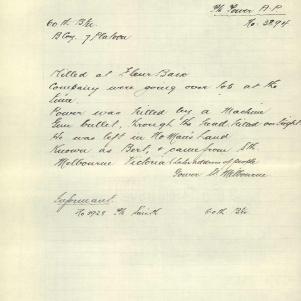 Pte Power A.P.
60th Btn. No. 3894
B Coy. 7 Platoon
Killed at Fleur Baix
Company were going over 2.45 at the
time.
Power was killed by a Machine
Gun bullet, through the head. Killed outright
He was left in No Man's Land
Known as Bert, & came from Sth
Melbourne Victoria (Late address of people
Gower St. Melbourne
Informant
No 3928 Pte Smith 60th Btn